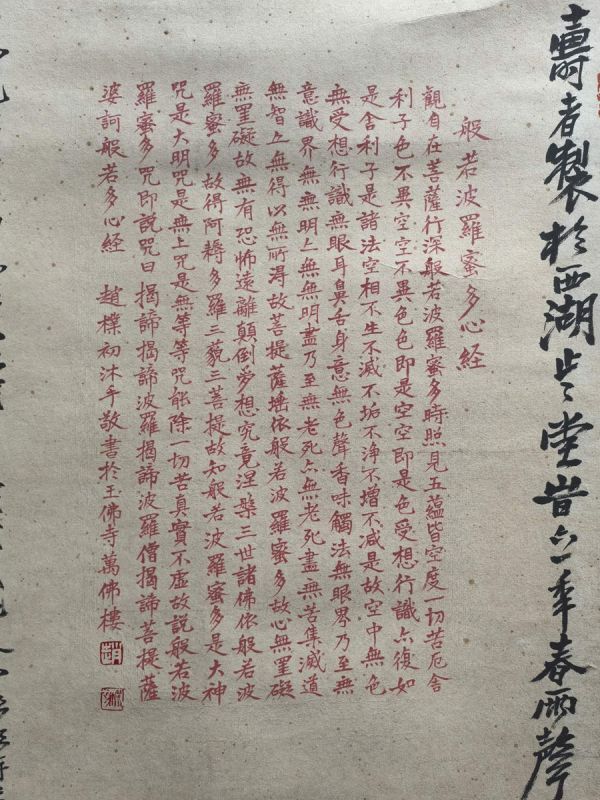 壽者製於西湖堂年春雨聲
般若波羅蜜多心経
觀自在菩薩行深般若波羅蜜多時照見五蘊皆空度一切苦厄舍
利子色不異空空不異色色即是空空即是色受想行識亦復如
是舍利子是諸法空相不生不滅不垢不浄不增不减是故空中無色
無受想行識無眼耳鼻舌身意無色聲香味觸法無眼界乃至無
意識界無無明亦無無明盡乃至無老死亦無老死盡無苦集滅道
無智亦無得以無所得故菩提薩埵依般若波羅蜜多故心無罣礙
無罣礙故無有恐怖遠離顛倒夢想究竟涅槃三世諸佛依般若波
羅蜜多故得阿耨多羅三藐三菩提故知般若波羅蜜多是大神
咒是大明咒是無上咒是無等等咒能除一切苦真實不虛故説般若波
羅蜜多咒即説咒曰揭諦揭諦波羅揭諦波羅僧揭諦菩提薩
婆訶般若多心經 趙樸初沐手敬書於玉佛寺萬佛樓
趙